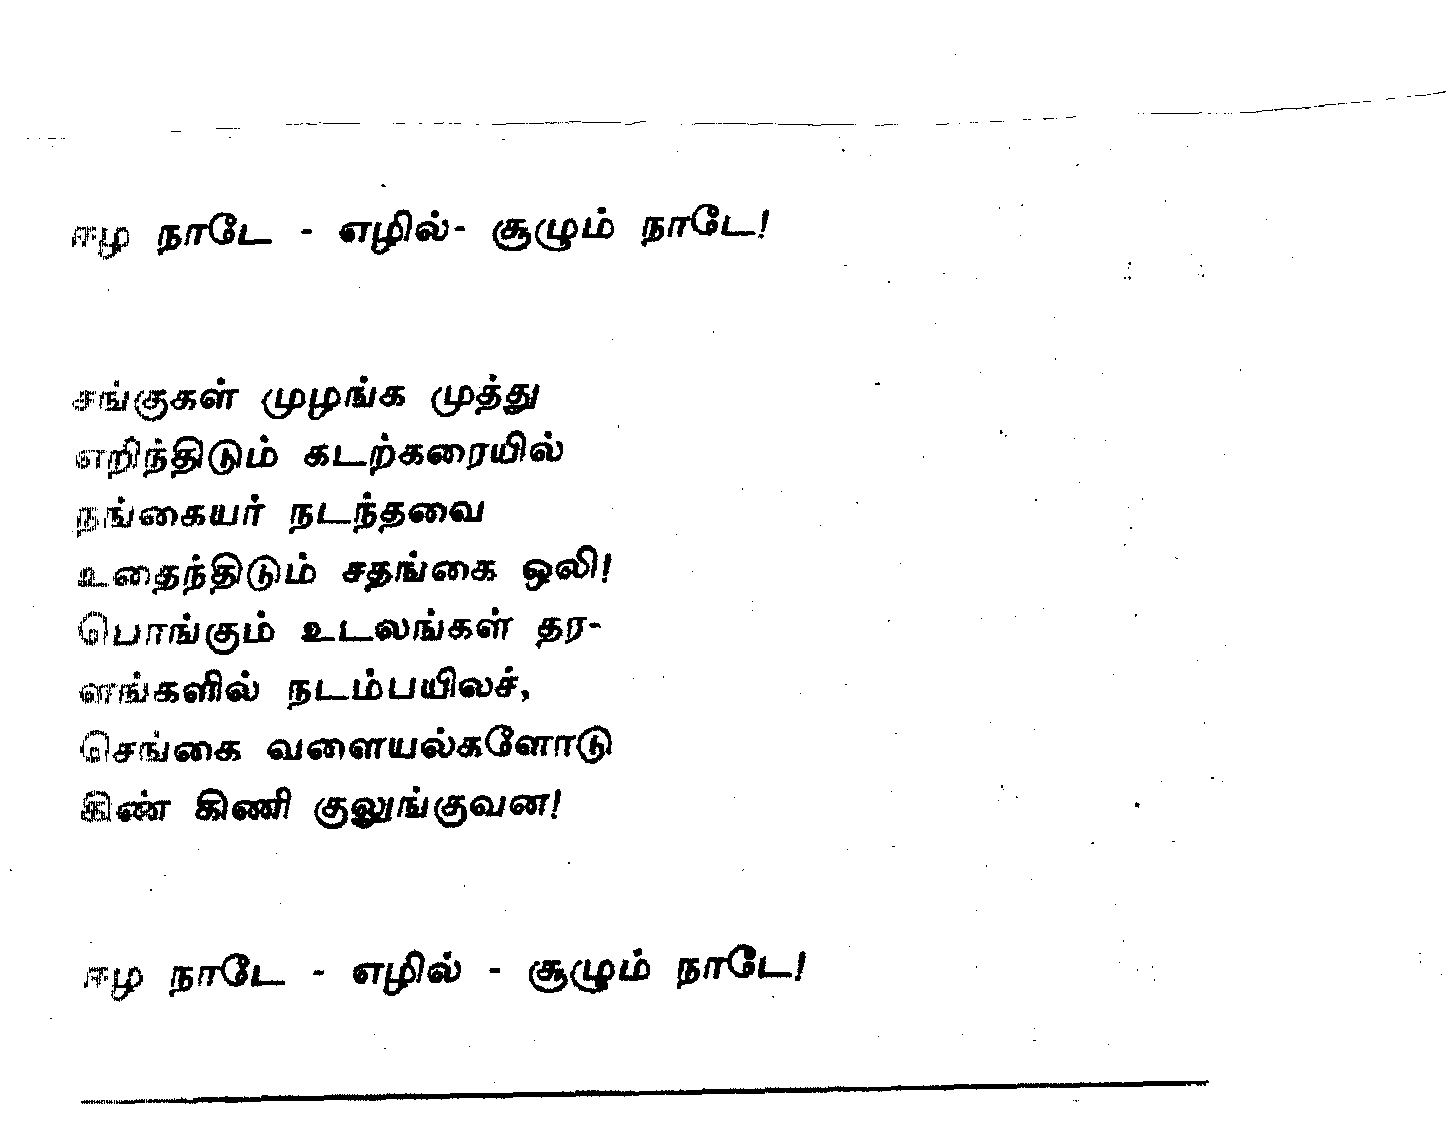 ஈழ நாடே - எழில்- சூழும் நாடே!
சங்குகள் முழங்க முத்து
எறிந்திடும் கடற்கரையில்
நங்கையர் நடந்தவை
உதைந்திடும் சதங்கை ஒலி!
பொங்கும் உடலங்கள் தர-
ளங்களில் நடம்பயிலச்,
செங்கை வளையல்களோடு
கிண் கிணி குலுங்குவன!
ஈழ நாடே - எழில் - சூழும் நாடே!